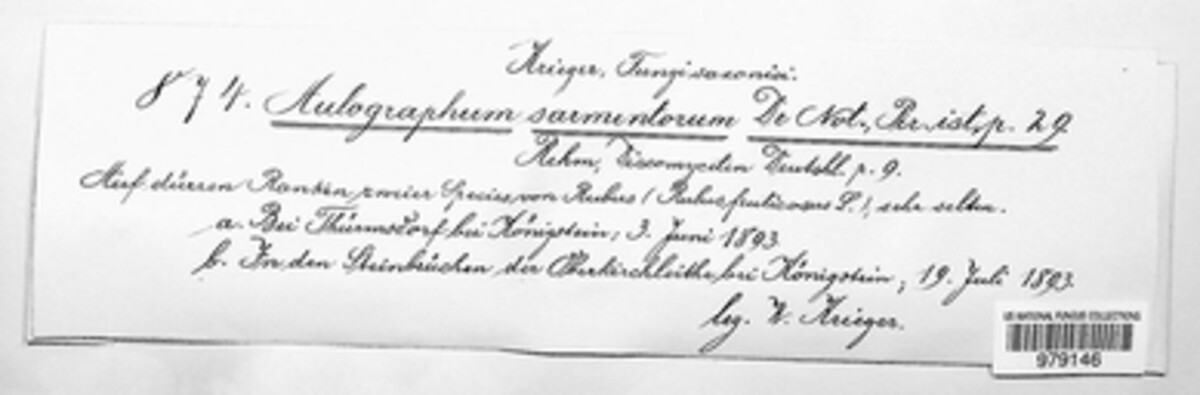 Krieger, Fungi saxonici.
874. Aulographum sarmentorum De Not., Pir. ist. p. 29
Rehm, Discomyceten Deutschl. p. 9.
Auf dürren Ranken zweier Species von Rubus (Rubus fruticosus L.), sehr selten.
a. Bei Thürmsdorf bei Königstein; 3. Juni 1893
b. In den Steinbrüchen der Oberkirchleithe bei Königstein; 19. Juli 1893
leg. W. Krieger.
US NATIONAL FUNGUS COLLECTIONS
979146